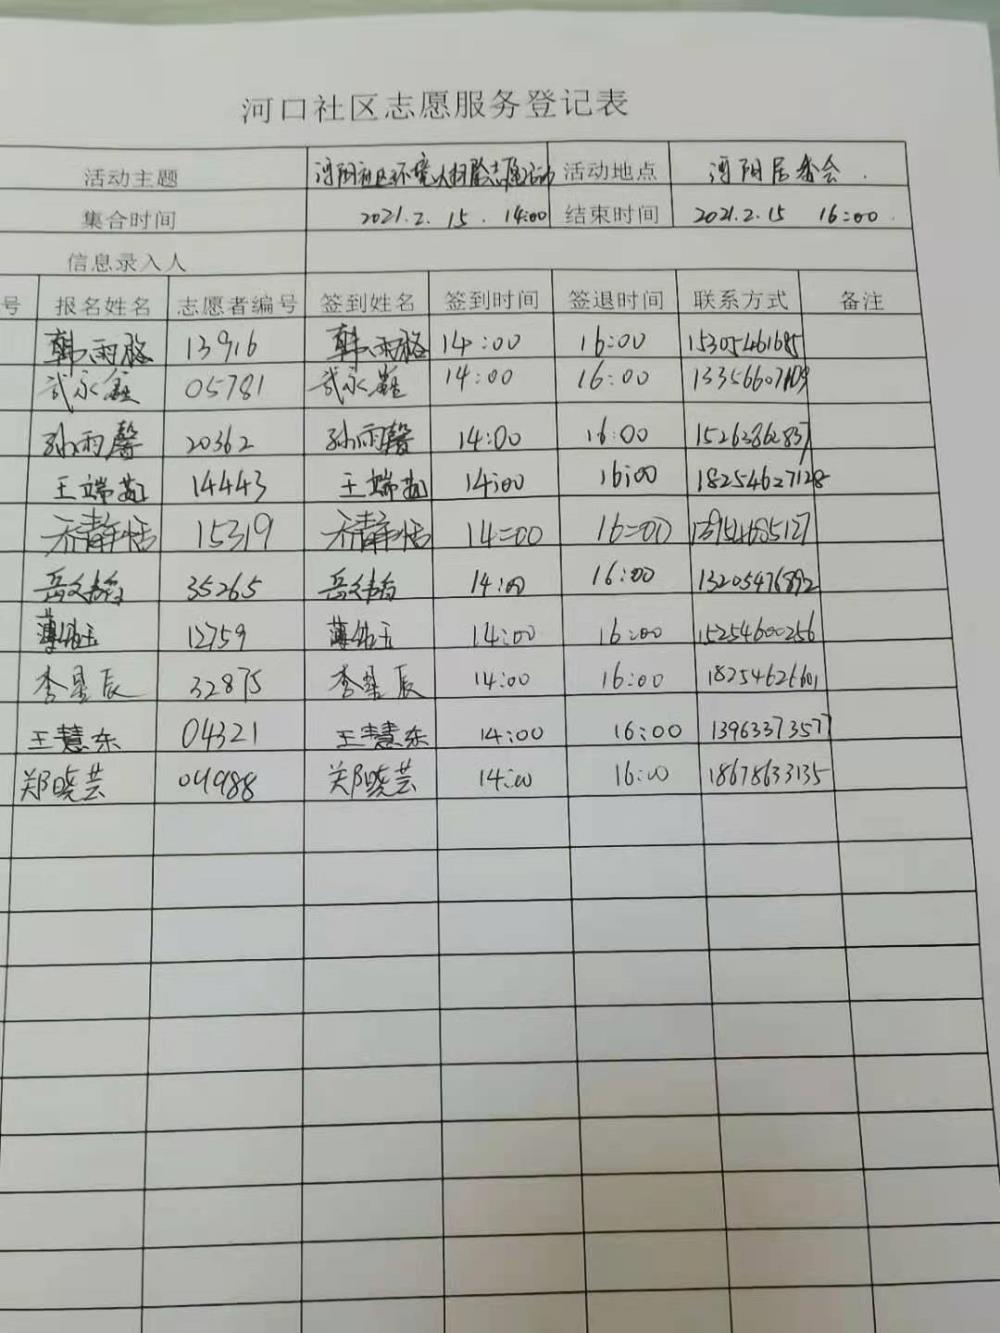 河口社区志愿服务登记表
活动主题 河阳社区环境大扫除志愿活动 活动地点 河阳居委会
集合时间 2021.2.15. 14:00 结束时间 2021.2.15 16:00
信息录入人
号 报名姓名 志愿者编号 签到姓名 签到时间 签退时间 联系方式 备注
韩雨 13916 韩雨 14:00 16:00 15305461685
武永鑫 05781 武永鑫 14:00 16:00 13356607109
孙雨馨 20362 孙雨馨 14:00 16:00 15263862837
王端 14443 王端 14:00 16:00 18254627128
静恬 15319 静恬 14:00 16:00
岳 35265 岳 14:00 16:00 13205476892
薄 玉 12759 薄 玉 14:00 16:00 15254600256
李星辰 32875 李星辰 14:00 16:00 18254626601
王慧东 04321 王慧东 14:00 16:00 13963373577
郑晓芸 04988 郑晓芸 14:00 16:00 18678633135